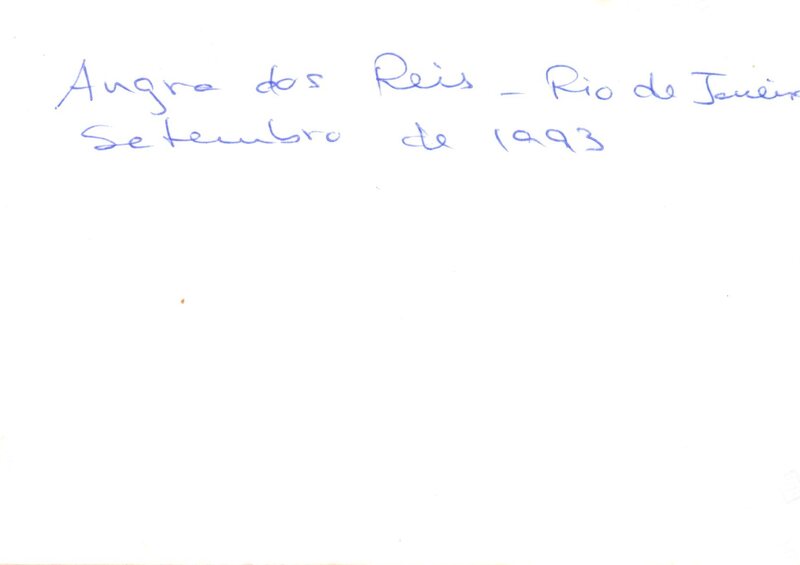 Angra dos Reis - Rio de Janeir
Setembro de 1993